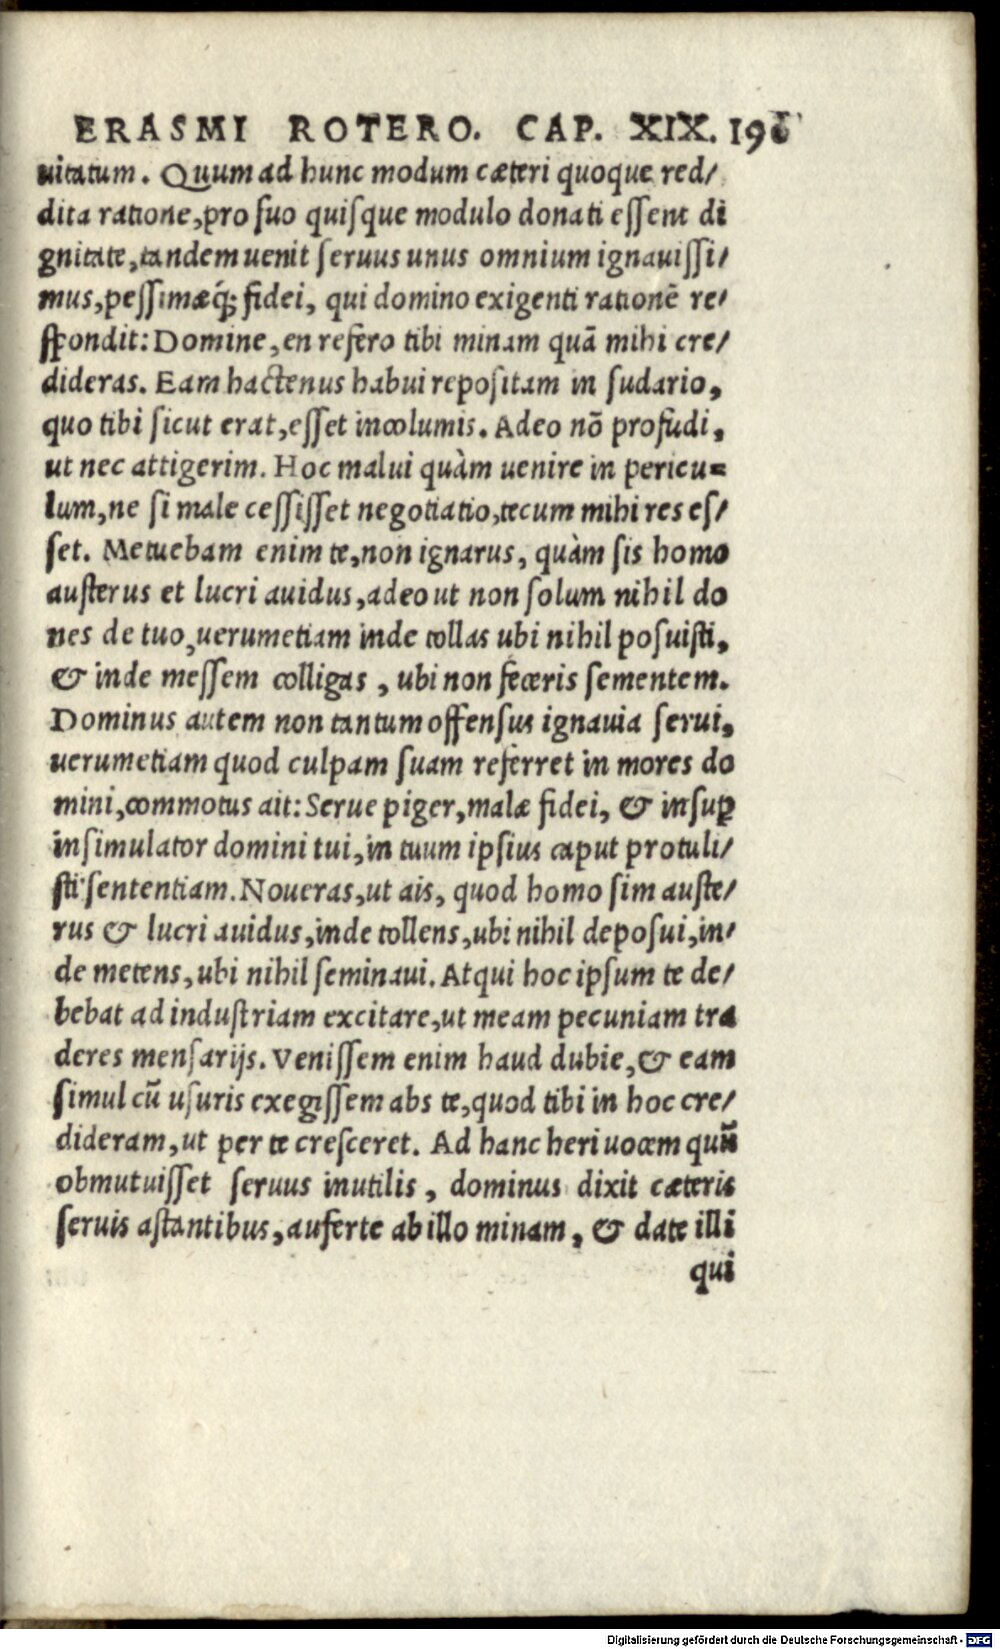 ERASMI ROTERO. CAP. XIX. 198
uitatum. Quum ad hunc modum cæteri quoque red/
dita ratione, pro suo quisque modulo donati essent di
gnitate, tandem uenit seruus unus omnium ignauissi/
mus, pessimæq́; fidei, qui domino exigenti rationẽ re/
spondit: Domine, en refero tibi minam quã mihi cre/
dideras. Eam hactenus habui repositam in sudario,
quo tibi sicut erat, esset incolumis. Adeo nõ profudi,
ut nec attigerim. Hoc malui quàm uenire in pericu=
lum, ne si male cessisset negotiatio, tecum mihi res es/
set. Metuebam enim te, non ignarus, quàm sis homo
austerus et lucri auidus, adeo ut non solum nihil do
nes de tuo, uerumetiam inde tollas ubi nihil posuisti,
& inde messem colligas, ubi non feceris sementem.
Dominus autem non tantum offensus ignauia serui,
uerumetiam quod culpam suam referret in mores do
mini, commotus ait: Serue piger, malæ fidei, & insuꝑ
insimulator domini tui, in tuum ipsius caput protuli/
sti sententiam. Noueras, ut ais, quod homo sim auste/
rus & lucri auidus, inde tollens, ubi nihil deposui, in/
de metens, ubi nihil seminaui. Atqui hoc ipsum te de/
bebat ad industriam excitare, ut meam pecuniam tra
deres mensarijs. Venissem enim haud dubie, & eam
simul cũ usuris exegissem abs te, quod tibi in hoc cre/
dideram, ut per te cresceret. Ad hanc heri uocem quũ
obmutuisset seruus inutilis, dominus dixit cæteris
seruis astantibus, auferte ab illo minam, & date illi
qui
Digitalisierung gefördert durch die Deutsche Forschungsgemeinschaft - DFG